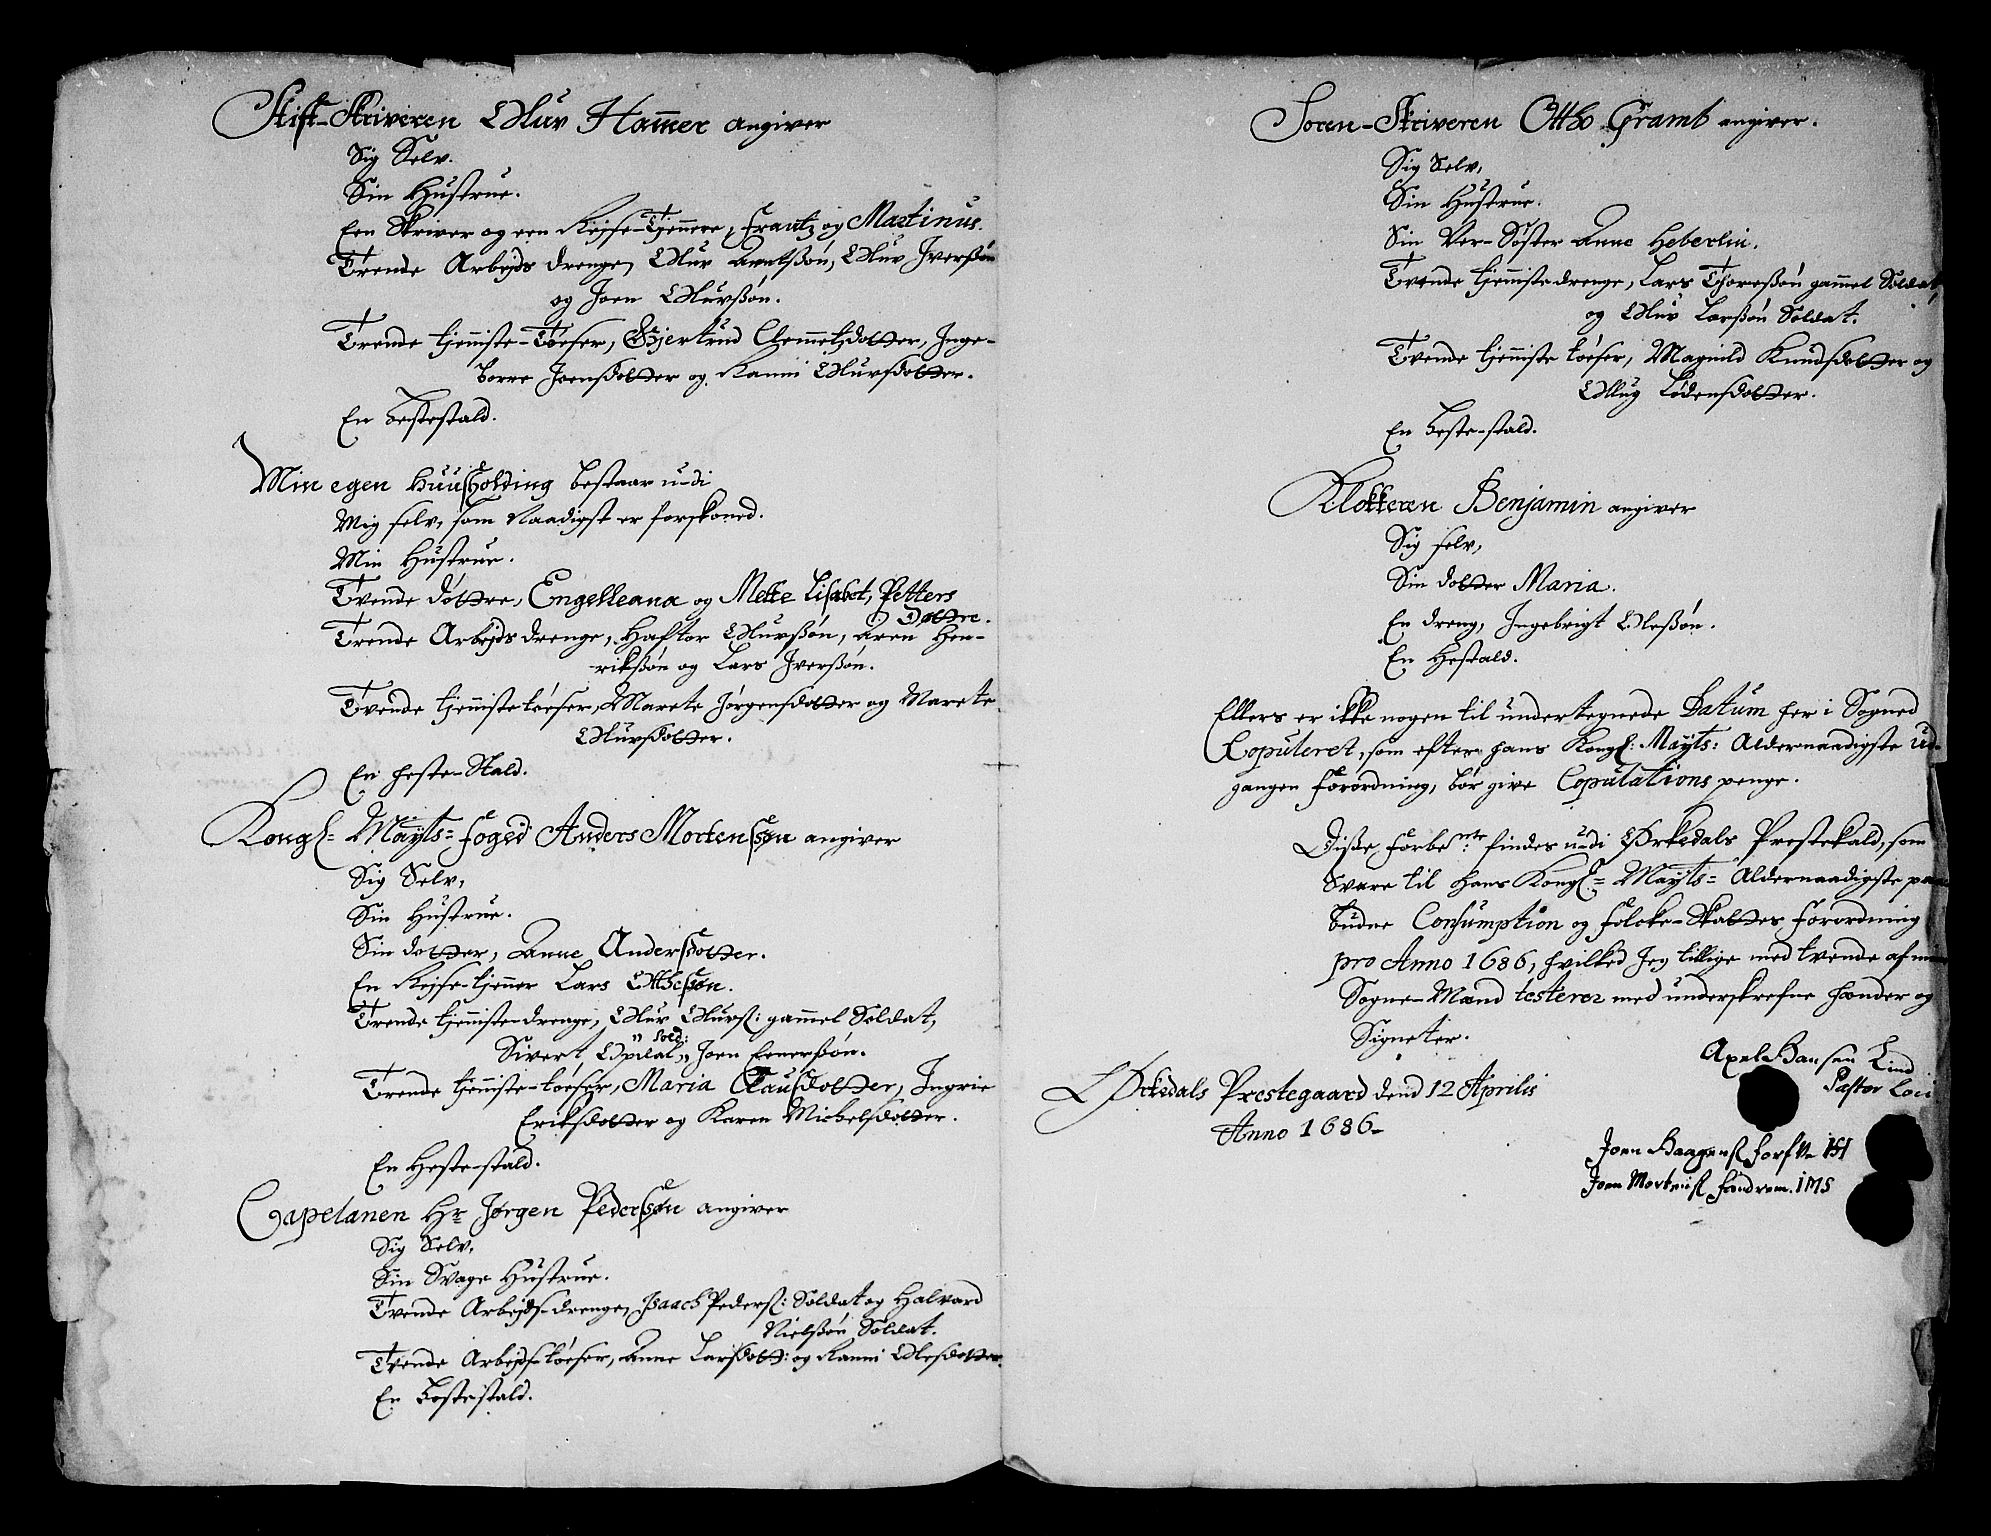 Stift-Skriveren Oluv Hammer angiver
Sig Selv.
Sin Hustrue.
Een Skriver og een Rejse-Tjennere, Frantz og Martinus.
Trende Arbejds drenge, Oluv Arntssøn, Oluv Iverssøn
og Joen Oluvssøn.
Trende tjenniste-Tøeser, Gjertrud Clemmetzdotter, Inge-
borre Joensdotter og Ranni Oluvsdotter.
En hestestald.
Min egen Huusholding bestaar udi
Mig selv, som Naadigst er forskoned.
Min Hustrue.
Tvende døttre, Engelleana og Mette Lisabet, Petters
Døttre.
Trende Arbejds drenge, Haftor Oluvssøn, Aren Hen-
rikssøn og Lars Iverssøn.
Tvende tjenniste tøeser, Marete Jørgensdotter og Marete
Oluvsdotter.
En heste-Stald.
Kongl= Mayts= foged Anders Mortenssøn angiver
Sig Selv,
Sin Hustrue.
Sin dotter, Anne Andersdotter.
En Rejse-tjenner Lars Otthessøn.
Trende tjenniste-drenge, Oluv Oluvs: gammel Soldat,
Sivert Opdal, Sold: Joen Eenerssøn.
Trende tjenniste-tøeser, Maria Clausdotter, Ingrie
Eriksdotter og Karen Michelsdotter.
En Heste-stald.
Capelanen Hr Jørgen Pederssøn angiver
Sig Selv,
Sin Svage Hustrue.
Tvende Arbejds-drenge, Isaach Peders: Soldat og Halvard
Nielssøn Soldat.
Tvende Arbejds-tøeser, Anne Larsdott: og Ranni Olesdotter.
En hestestald.
Soren-Skriveren Ottho Gramb angiver.
Sig Selv,
Sin Hustrue.
Sin Ver-Søster Anne Heberlin.
Tvende tjenniste drenge, Lars Thoressøn gammel Soldat,
og Oluv Larssøn Soldat.
Tvende tjenniste tøeser, Magnild Knudsdotter og
Ollug Lødensdotter.
En heste-stald.
Klokkeren Benjamin angiver
Sig selv,
Sin dotter Maria.
En dreng, Ingebrigt Olessøn.
En Hestald.
Ellers er ikke nogen til undertegnede Datum her i Sogned
Copuleret, som efter hans Kongl: Mayts: Aldernaadigste ud-
gangen Forordning, bør give Copulations penge.
Disse forbente findes udi Ørkedals Prestekald, som
Svare til hans Kongl= Mayts= Aldernaadigste paa-
budne Consumption og Folcke-Skattes Forordning
pro Anno 1686, hvilked Jeg tillige med tvende af mine
Sogne-Mænd testerer med underskrefne hænder og
Signeter.
Axel Hansen Lind
Pastor Loci
Ørkedals Prestegaard dend 12 Aprilis
Anno 1686-
Joen Haagens
Joen Mortens IMS